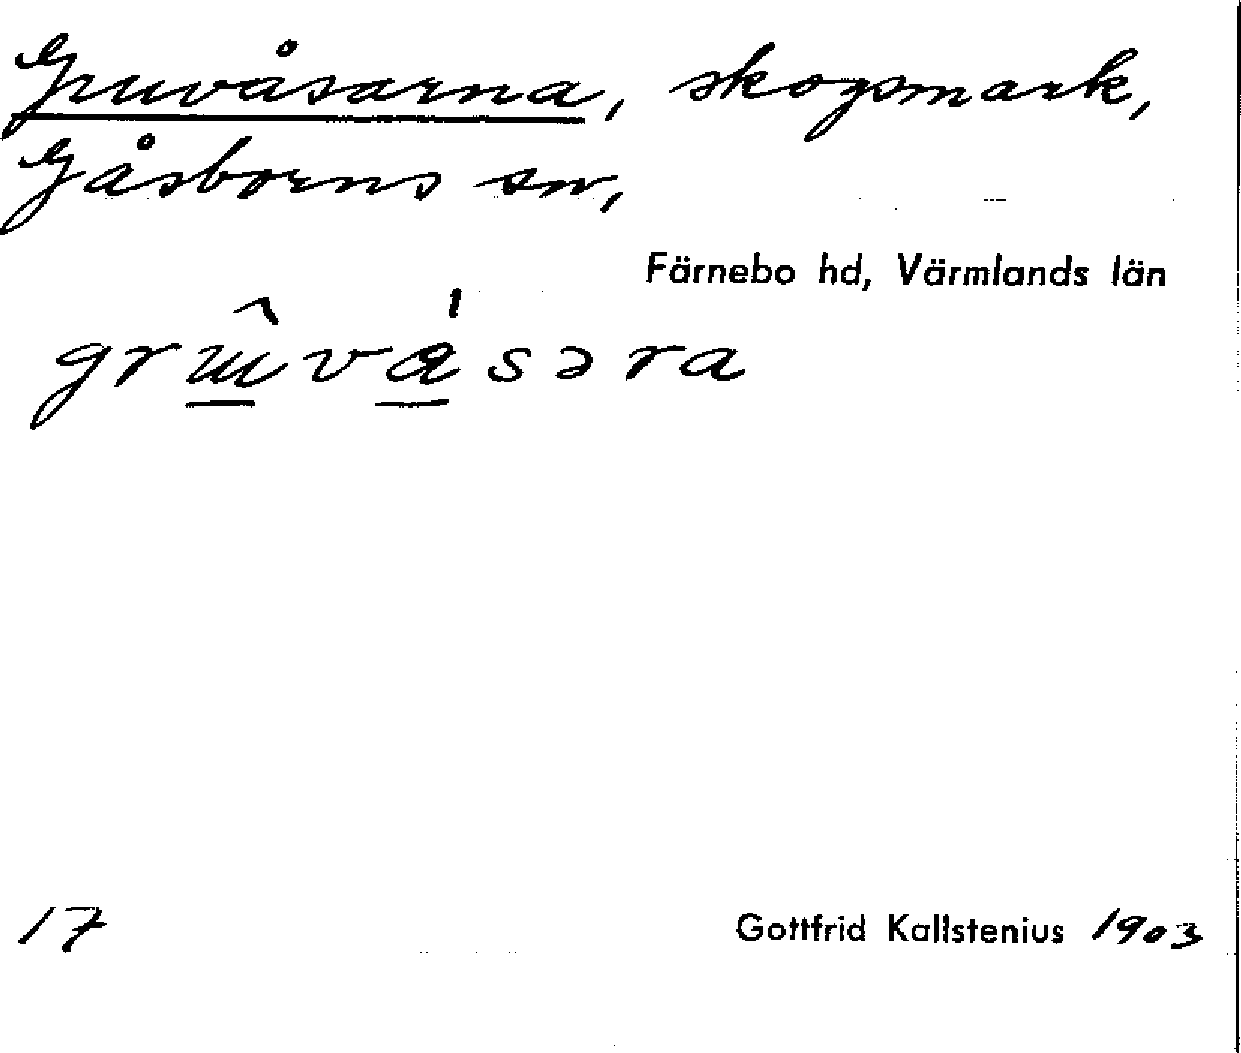 Gruvåsarna, skogsmark,
Gåsborns sn,
Färnebo hd, Värmlands län
17
Gottfrid Kallstenius 1903